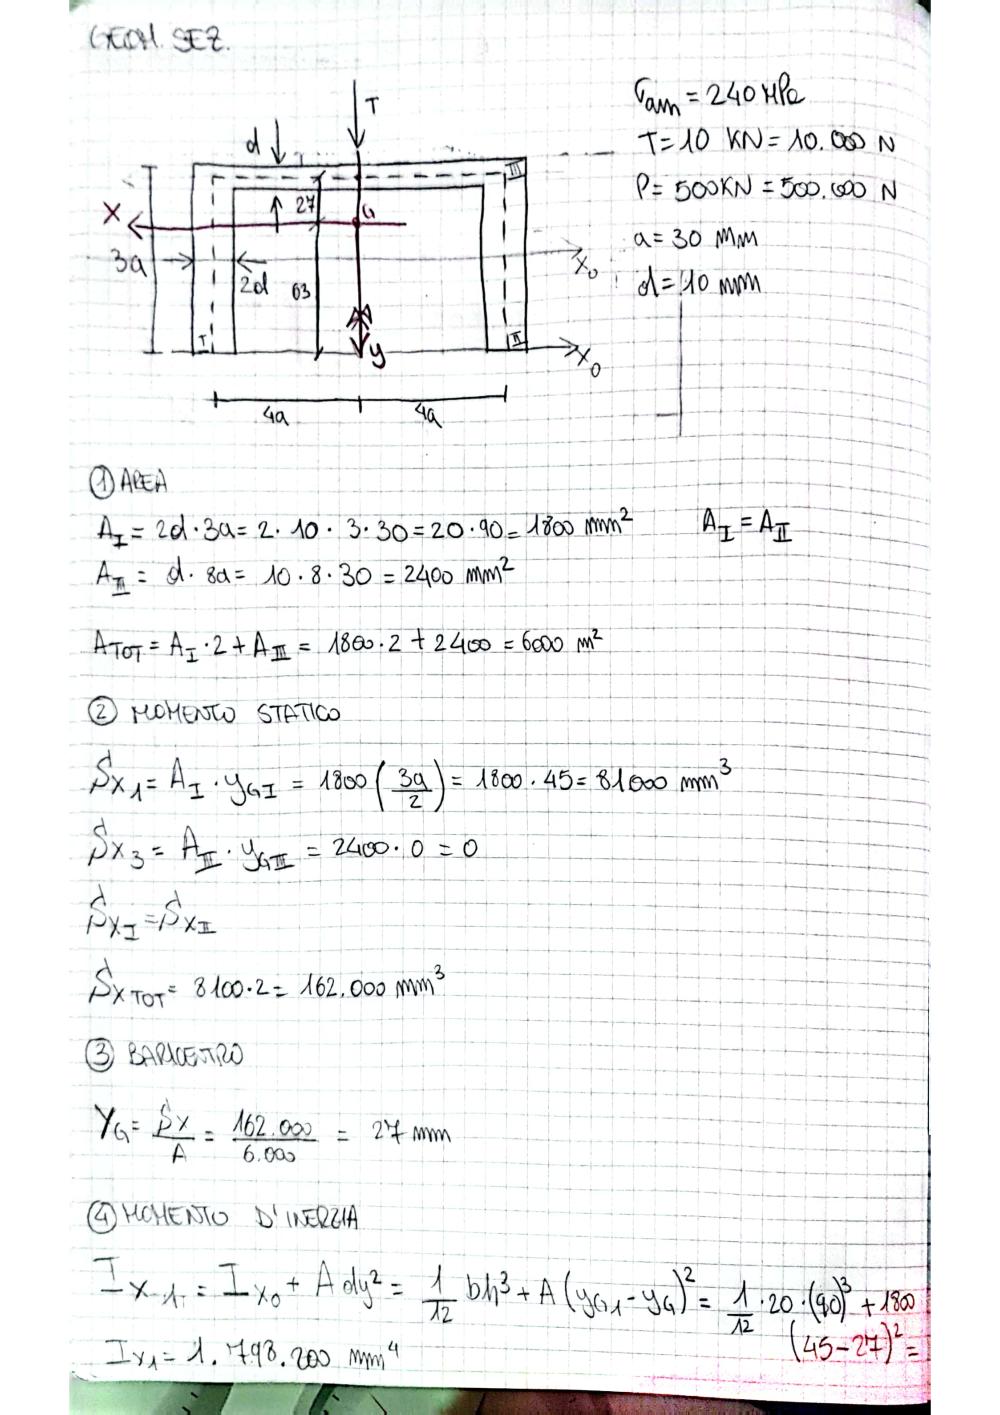 GEOM. SEZ.
T
d
27
G
X
3a
2d
63
X₀
I
II
III
y
X₀
4a
4a
σam = 240 MPa
T = 10 KN = 10.000 N
P = 500KN = 500.000 N
a = 30 mm
d = 10 mm
① AREA
A_I = 2d · 3a = 2 · 10 · 3 · 30 = 20 · 90 = 1800 mm² A_I = A_II
A_III = d · 8a = 10 · 8 · 30 = 2400 mm²
A_TOT = A_I · 2 + A_III = 1800 · 2 + 2400 = 6000 m²
② MOMENTO STATICO
S_X1 = A_I · y_GI = 1800 (3a/2) = 1800 · 45 = 81000 mm³
S_X3 = A_III · y_GIII = 2400 · 0 = 0
S_XI = S_XII
S_X TOT = 8100 · 2 = 162.000 mm³
③ BARICENTRO
Y_G = Sx/A = 162.000/6.000 = 27 mm
④ MOMENTO D'INERZIA
I_X1 = I_X0 + A dy² = 1/12 bh³ + A (y_G1 - y_G)² = 1/12 · 20 · (90)³ + 1800
(45 - 27)² =
I_X1 = 1.798.200 mm⁴